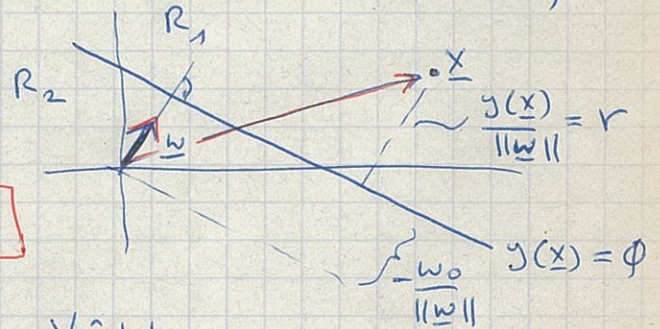 R₁
R₂
x
w
y(x) / ||w|| = r
y(x) = ϕ
-w₀ / ||w||